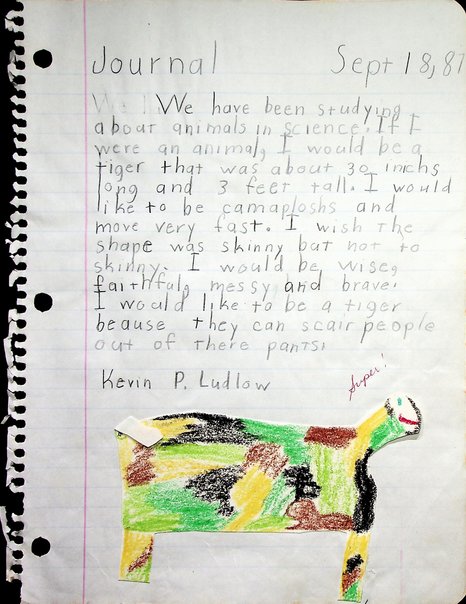 Journal Sept 18, 87
We have been studying
about animals in science. If I
were an animal, I would be a
tiger that was about 30 inichs
long and 3 feet tall. I would
like to be camaploshs and
move very fast. I wish the
shape was skinny but not to
skinny. I would be wise,
faithful, messy and brave.
I would like to be a tiger
beause they can scair people
out of there pants.
Kevin P. Ludlow
Super!